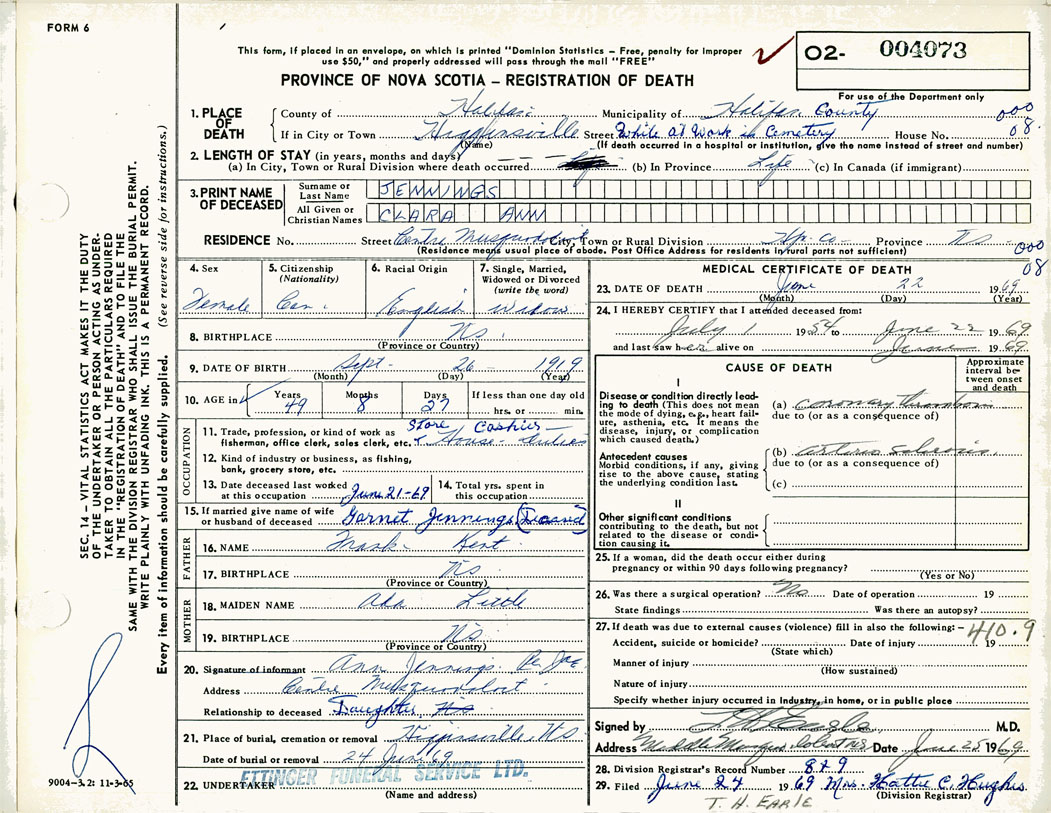 FORM 6
This form, if placed in an envelope, on which is printed "Dominion Statistics – Free, penalty for improper
use $50," and properly addressed will pass through the mail "FREE"
PROVINCE OF NOVA SCOTIA – REGISTRATION OF DEATH
02- 004073
For use of the Department only
1. PLACE OF DEATH
County of Halifax Municipality of Halifax County 000
If in City or Town Higginsville Street While at Work in Cemetery House No. 08
(Name) (If death occurred in a hospital or institution, give the name instead of street and number)
2. LENGTH OF STAY (in years, months and days)
(a) In City, Town or Rural Division where death occurred (b) In Province Life (c) In Canada (if immigrant)
3. PRINT NAME OF DECEASED
Surname or Last Name JENNINGS
All Given or Christian Names CLARA ANN
RESIDENCE No. Street Centre Musquodoboit City, Town or Rural Division Hfx Co Province NS
(Residence means usual place of abode. Post Office Address for residents in rural parts not sufficient)
000
08
4. Sex Female
5. Citizenship (Nationality) Can.
6. Racial Origin English
7. Single, Married, Widowed or Divorced (write the word) Widow
8. BIRTHPLACE NS
(Province or Country)
9. DATE OF BIRTH Sept 26 1919
(Month) (Day) (Year)
10. AGE in Years 49 Months 8 Days 27 If less than one day old hrs. or min.
OCCUPATION
11. Trade, profession, or kind of work as Store Cashier
fisherman, office clerk, sales clerk, etc. & House-duties
12. Kind of industry or business, as fishing,
bank, grocery store, etc.
13. Date deceased last worked at this occupation June 21-69
14. Total yrs. spent in this occupation
15. If married give name of wife
or husband of deceased Garnet Jennings
FATHER
16. NAME Mark Kent
17. BIRTHPLACE NS
(Province or Country)
MOTHER
18. MAIDEN NAME Ada Little
19. BIRTHPLACE NS
(Province or Country)
20. Signature of informant Ann Jennings
Address Centre Musquodoboit
Relationship to deceased Daughter
21. Place of burial, cremation or removal Higginsville NS
Date of burial or removal 24 June 69
22. UNDERTAKER ETTINGER FUNERAL SERVICE LTD.
(Name and address)
MEDICAL CERTIFICATE OF DEATH
23. DATE OF DEATH June 22 1969
(Month) (Day) (Year)
24. I HEREBY CERTIFY that I attended deceased from:
July 1 1954 to June 22 1969
and last saw her alive on June 1969
CAUSE OF DEATH
Approximate interval between onset and death
I
Disease or condition directly lead-
ing to death (This does not mean
the mode of dying, e.g., heart fail-
ure, asthenia, etc. It means the
disease, injury, or complication
which caused death.)
(a) coronary thrombosis
due to (or as a consequence of)
Antecedent causes
Morbid conditions, if any, giving
rise to the above cause, stating
the underlying condition last.
(b) arterio sclerosis
due to (or as a consequence of)
(c)
II
Other significant conditions
contributing to the death, but not
related to the disease or condi-
tion causing it.
25. If a woman, did the death occur either during
pregnancy or within 90 days following pregnancy?
(Yes or No)
26. Was there a surgical operation? No Date of operation 19
State findings Was there an autopsy?
27. If death was due to external causes (violence) fill in also the following: – 410.9
Accident, suicide or homicide? Date of injury 19
(State which)
Manner of injury
(How sustained)
Nature of injury
Specify whether injury occurred in industry, in home, or in public place
Signed by M.D.
Address Middle Musquodoboit NS Date June 25 1969
28. Division Registrar's Record Number 829
29. Filed June 24 1969 Mrs. Hattie C. Hughes
(Division Registrar)
T. H. EARLE
SEC. 14 – VITAL STATISTICS ACT MAKES IT THE DUTY
OF THE UNDERTAKER OR PERSON ACTING AS UNDER-
TAKER TO OBTAIN ALL THE PARTICULARS REQUIRED
IN THE "REGISTRATION OF DEATH" AND TO FILE THE
SAME WITH THE DIVISION REGISTRAR WHO SHALL ISSUE THE BURIAL PERMIT.
WRITE PLAINLY WITH UNFADING INK. THIS IS A PERMANENT RECORD.
Every item of information should be carefully supplied. (See reverse side for instructions.)
9004-3.2: 11-3-65